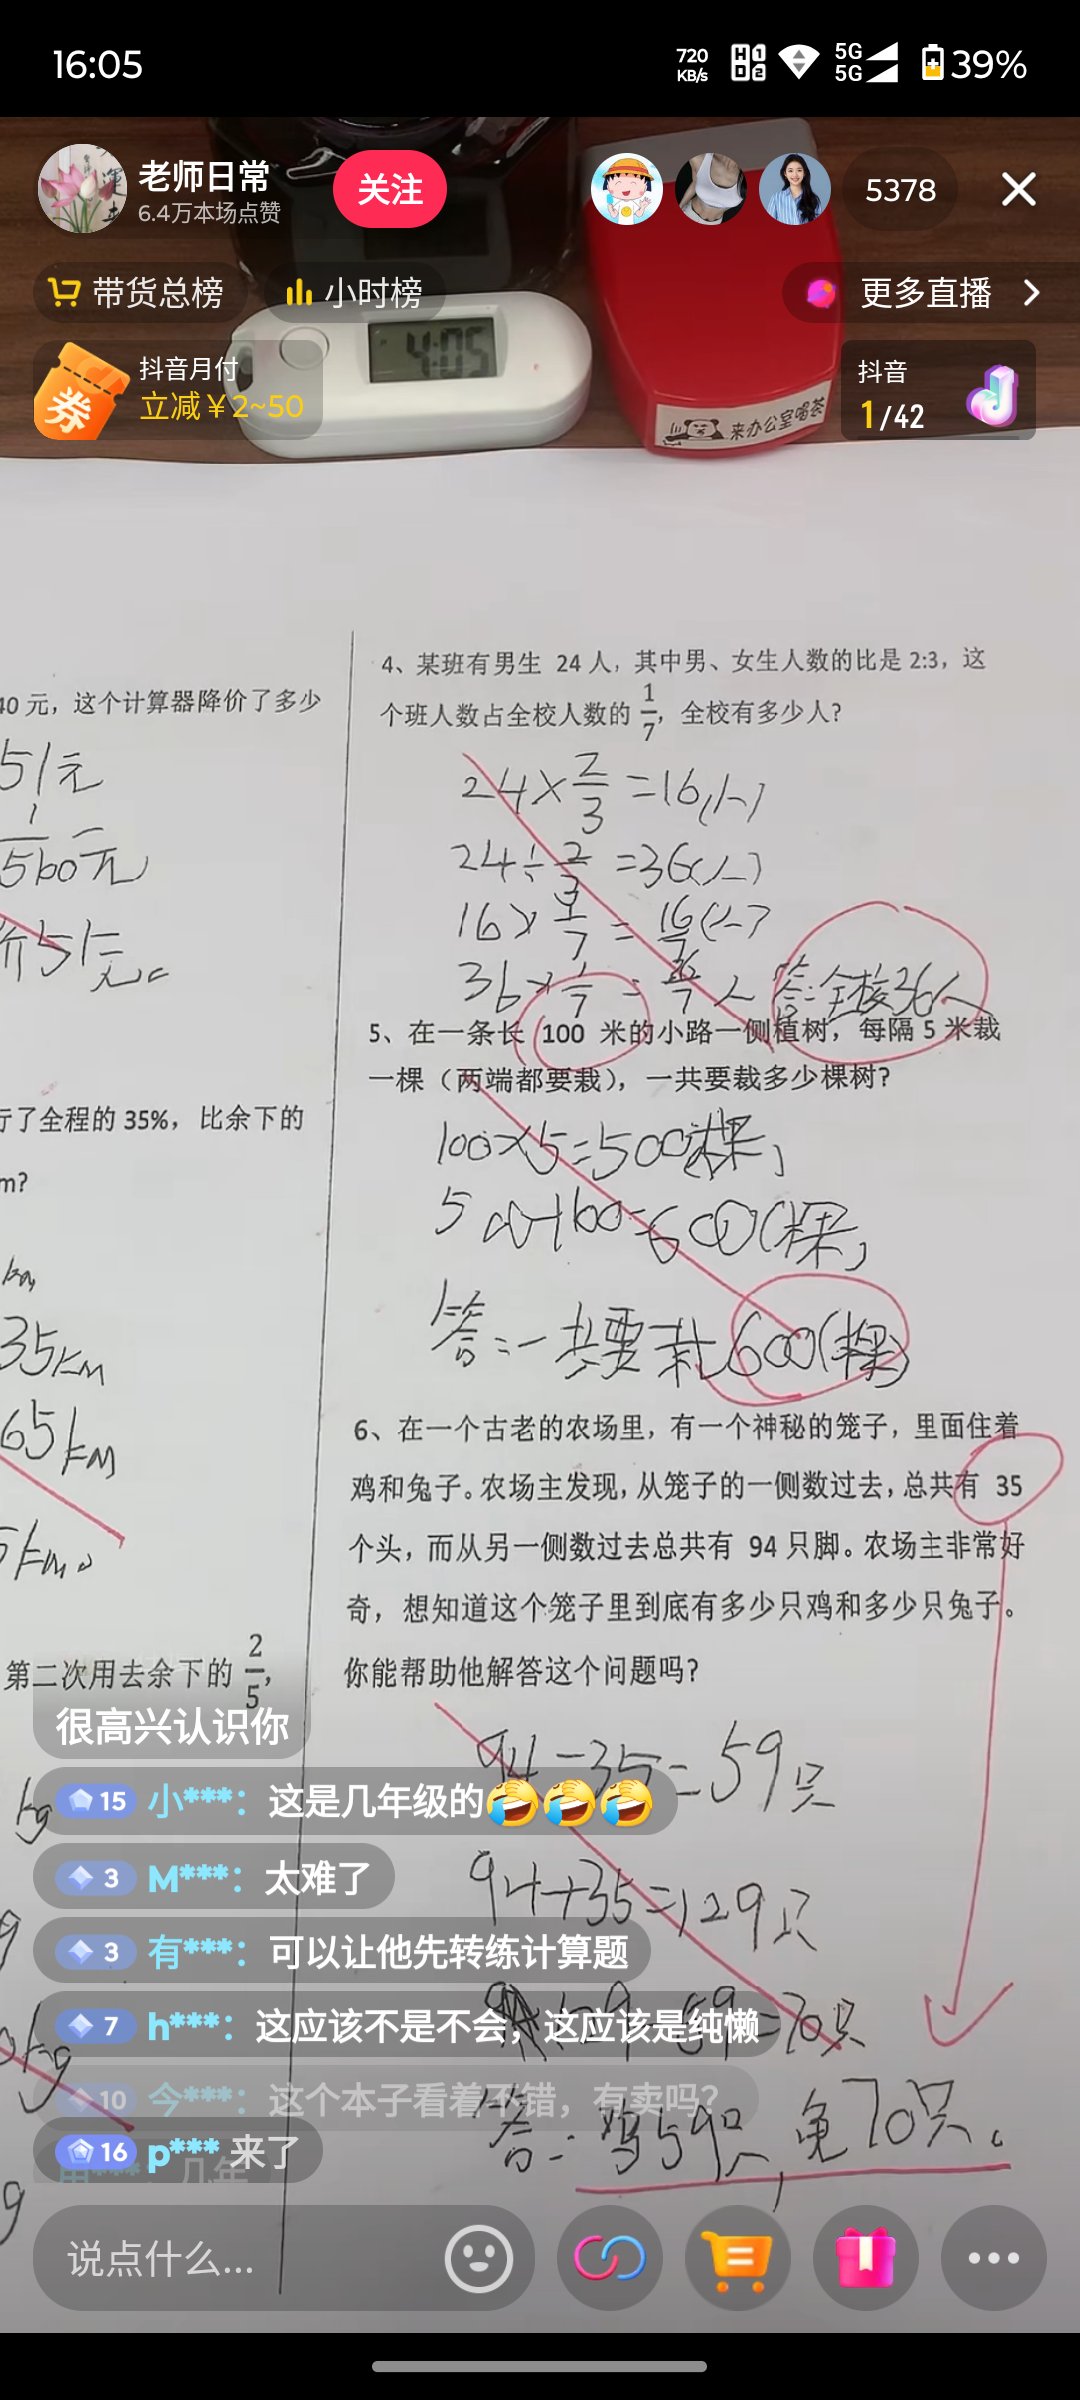 16:05
720
KB/s
HD 1 2
5G
5G
39%
老师日常
6.4万本场点赞
关注
5378
带货总榜
小时榜
更多直播
4:05
券
抖音月付
立减￥2~50
抖音
1/42
来办公室喝茶
40元，这个计算器降价了多少
51元
560元
价51元。
行了全程的35%，比余下的
m?
km
35km
65km
5km。
第二次用去余下的 2/5，
kg
4、某班有男生 24 人，其中男、女生人数的比是 2:3，这
个班人数占全校人数的 1/7，全校有多少人?
24×2/3=16(人)
24÷2/3=36(人)
16×1/7=16/7(人)
36×1/7=36/7人 答:全校36人
5、在一条长 100 米的小路一侧植树，每隔 5 米栽
一棵（两端都要栽），一共要栽多少棵树?
100×5=500(棵)
500+100=600(棵)
答:一共要栽600(棵)
6、在一个古老的农场里，有一个神秘的笼子，里面住着
鸡和兔子。农场主发现，从笼子的一侧数过去，总共有 35
个头，而从另一侧数过去总共有 94 只脚。农场主非常好
奇，想知道这个笼子里到底有多少只鸡和多少只兔子。
你能帮助他解答这个问题吗?
94-35=59只
94+35=129只
59=70只
答:鸡59只，兔70只。
很高兴认识你
15 小***：这是几年级的🤣🤣🤣
3 M***：太难了
3 有***：可以让他先转练计算题
7 h***：这应该不是不会，这应该是纯懒
10 今***：这个本子看着不错，有卖吗？
16 p*** 来了
说点什么...